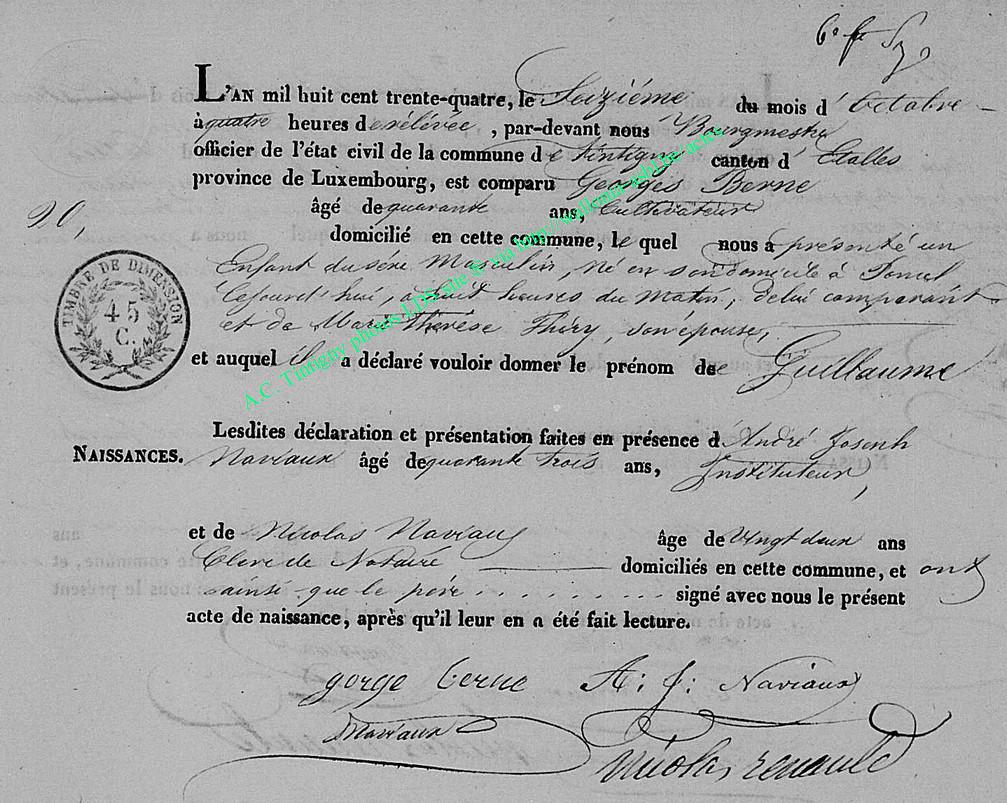 L'AN mil huit cent trente-quatre, le Seizième du mois d'Octobre
à quatre heures de rélévée, par-devant nous Bourgmestre
officier de l'état civil de la commune de Tintigny canton d'Etalles
province de Luxembourg, est comparu Georges Berne
âgé de quarante ans, Cultivateur
90,
domicilié en cette commune, le quel nous a présenté un
Enfant du séxe Masculin, né en son domicile à Poncel
Cejourd'hui, à huit heures du Matin, de lui comparant
et de Marie Thérèse Thiry, son épouse,
TIMBRE DE DIMENSION
45
C.
et auquel il a déclaré vouloir donner le prénom de Guillaume
A.C. Tintigny photos LDS
Lesdites déclaration et présentation faites en présence d'André Joseph
NAISSANCES.
Naviaux âgé de quarante trois ans, Instituteur,
et de Nicolas Naviaux âge de Vingt deux ans
Clerc de Notaire domiciliés en cette commune, et ont
ainsi que le père signé avec nous le présent
acte de naissance, après qu'il leur en a été fait lecture.
gorge berne A: J: Naviaux
Naviaux
Nicolas renauld